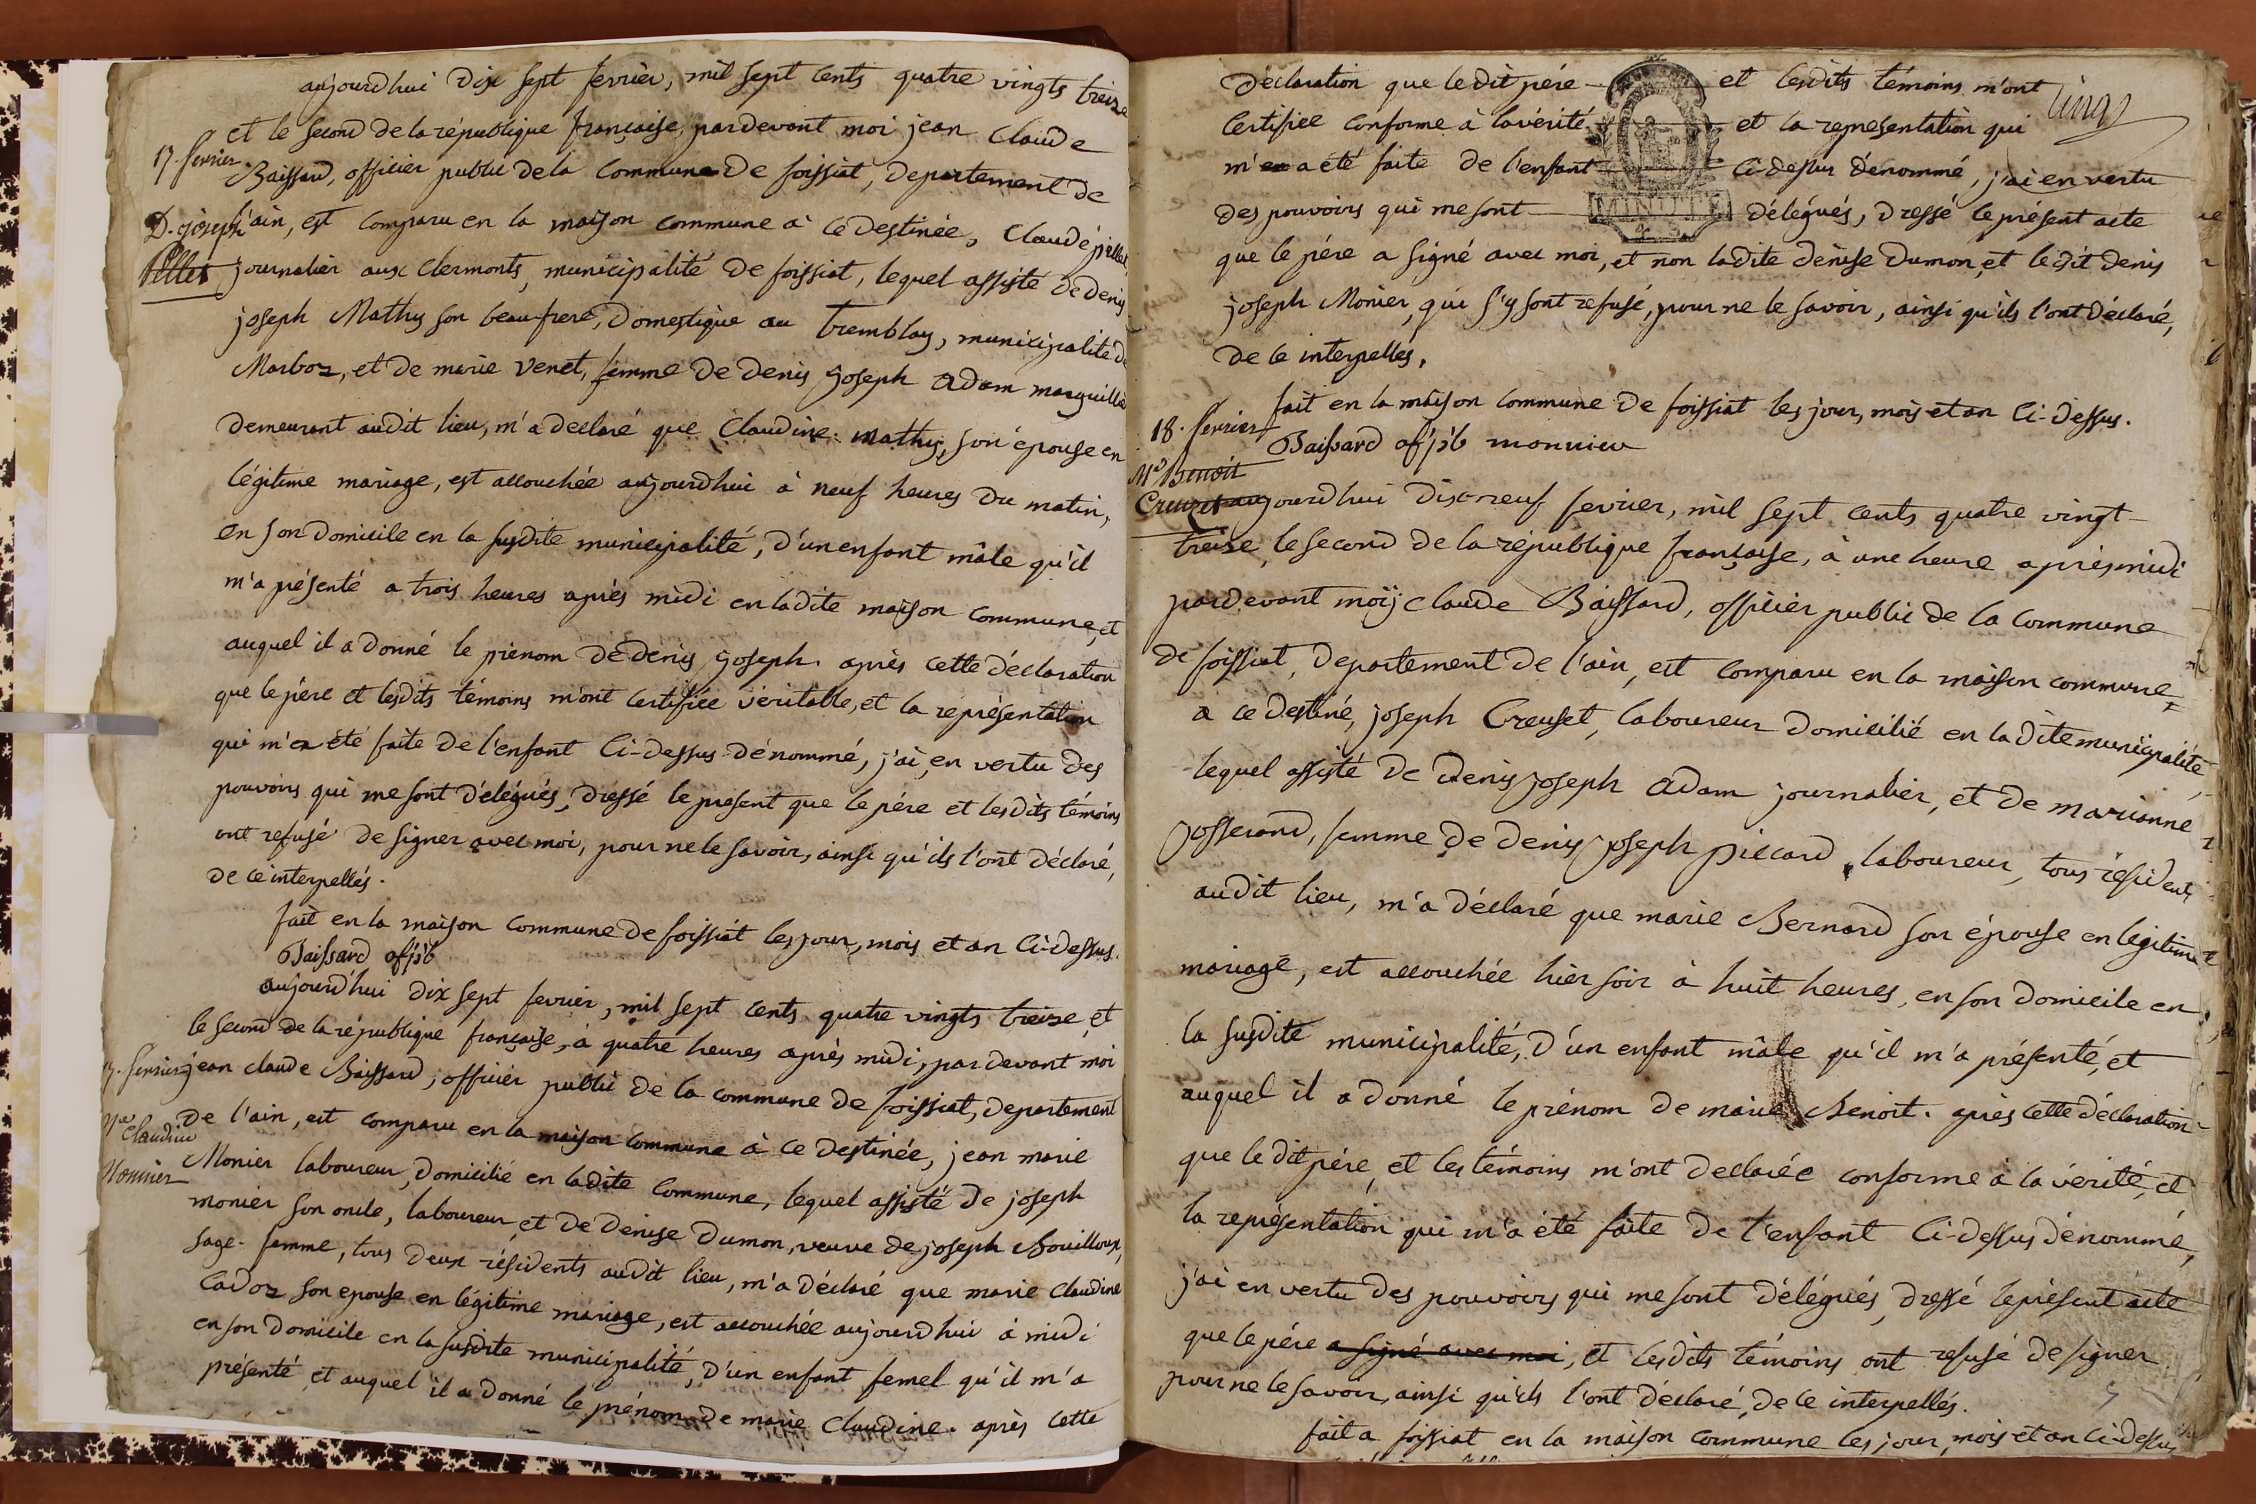 aujourdhui dix sept fevrier, mil sept cents quatre vingts treize
et le second de la république française, pardevant moi jean Claude
17. fevrier
Baissard, officier public de la Commune de foissiat, departement de
D. joseph
l'ain, est comparu en la maison commune à ce destinée, Claude pillet
Pillet
journalier aux Clermonts, municipalité de foissiat, lequel assisté de denis
joseph Mathy son beau-frere, domestique au tremblay, municipalité de
Marboz, et de marie Venet, femme de denis joseph Adam
demeurant audit lieu, m'a declaré que Claudine mathy, son épouse en
légitime mariage, est accouchée aujourdhui à neuf heures du matin,
en son domicile en la susdite municipalité, d'un enfant mâle qu'il
m'a présenté a trois heures après midi en ladite maison commune, et
auquel il a donné le prénom de denis joseph. après cette déclaration
que le père et lesdits témoins m'ont certifiée véritable, et la représentation
qui m'en été faite de l'enfant ci-dessus dénommé, j'ai, en vertu des
pouvoirs qui me sont délégués, dressé le present que le pére et lesdits témoins
ont refusé de signer avec moi, pour ne le savoir, ainsi qu'ils l'ont déclaré,
de ce interpellés.
fait en la maison commune de foissiat les jour, mois et an ci-dessus.
Baissard of pb
aujourd'hui dix sept fevrier, mil sept cents quatre vingts treize, et
le second de la république française, à quatre heures après midi, pardevant moi
17. fevrier
jean claude Baissard, officier public de la commune de foissiat, departement
Mie Claudine
de l'ain, est comparu en la maison commune à ce destinée, jean marie
Monnier
Monier laboureur, domicilié en ladite commune, lequel assisté de joseph
monier son oncle, laboureur, et de denise dumon, veuve de joseph Bouilloux,
sage-femme, tous deux résidents audit lieu, m'a déclaré que marie Claudine
Cadoz son epouse en légitime mariage, est accouchée aujourdhui à midi
en son domicile en la susdite municipalité, d'un enfant femel qu'il m'a
présenté et auquel il a donné le prénom de marie Claudine. après cette
déclaration que le dit pére et lesdits témoins m'ont
certifiee conforme à la vérité et la representation qui
m'en a été faite de l'enfant ci-dessus dénommé, j'ai en vertu
des pouvoirs qui me sont délégués, dressé le présent acte
MINUTE
que le pére a signé avec moi, et non ladite denise dumon, et ledit denis
joseph Monier, qui s'y sont refusé, pour ne le savoir, ainsi qu'ils l'ont déclaré,
de ce interpellés,
fait en la maison commune de foissiat les jour, mois et an ci-dessus.
18. fevrier
Baissard of pb monnier
Mie Benoit
Creuzet
aujourdhui dix-neuf fevrier, mil sept cents quatre vingt-
treize, le second de la république française, à une heure après midi
pardevant moi j claude Baissard, officier public de la commune
de foissiat, departement de l'ain, est comparu en la maison commune,
a ce destiné, joseph Creuset, laboureur domicilié en la dite municipalité,
lequel assisté de denis joseph Adam journalier, et de marianne
josserand, femme de denis joseph piccard, laboureur, tous résidents
audit lieu, m'a déclaré que marie Bernard son épouse en legitime
mariage, est accouchée hier soir à huit heures, en son domicile en
la susdite municipalité, d'un enfant mâle qu'il m'a présenté, et
auquel il a donné le prénom de marie Benoit. après cette déclaration
que le dit pére, et les témoins m'ont declarée conforme à la vérité, et
la représentation qui m'a été faite de l'enfant ci-dessus dénommé,
j'ai en vertu des pouvoirs qui me sont délégués, dressé le présent acte
que le pére a signé avec moi, et lesdits témoins ont refusé de signer
pour ne le savoir, ainsi qu'ils l'ont déclaré, de ce interpellés.
fait a foissiat en la maison commune les jour, mois et an ci-dessus